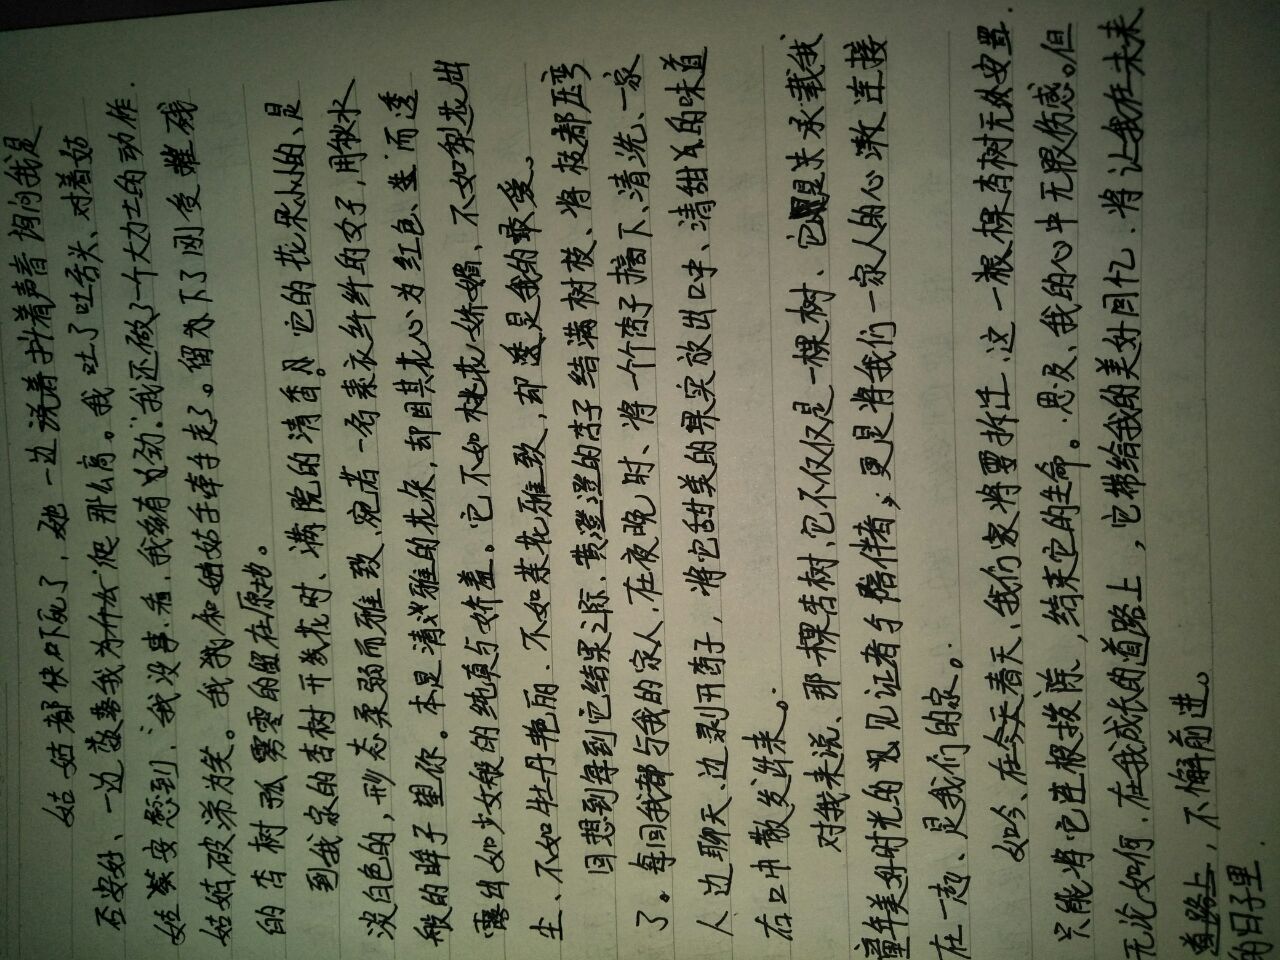 姑姑都快吓死了，她一边说着抖着声音询问我是
否安好、一边责备我为什么爬那么高。我吐了吐舌头、对着姑
姑安慰到：“我没事，看，我多有劲。”我还做了个大力士的动作．
姑姑破涕为笑。我和姑姑手牵手走了。留下了刚受摧残
的杏树孤零零的留在原地。
到我家的杏树开花时、满院的清香。它的花朵小小的、是
淡白色的，形态柔弱而雅致、宛若一名素衣纤纤的女子，用秋水
般的眸子望你。本是清雅的花朵，却因其花心为红色、而透
露出如少女般的纯真与娇羞。它不如桃花娇媚、不如梨花出
尘、不如牡丹艳丽．不如茶花雅致，却是我的最爱。
回想到每到它结果之际．黄澄澄的杏子结满树枝、将枝都压弯
了。每回我都与我的家人．在夜晚时、将一个个杏子摘下、清洗、一家
人边聊天、边剥开杏子，将它甜美的果实放出口中、清甜的味道
在口中散发出来。
对我来说、那棵杏树、它不仅仅是一棵树、它是承载我
童年美好时光的见证者与陪伴者，更是将我们一家人的心深深连接
在一起、是我们的家。
如今、在今天春天、我们家将要拆迁．这一棵杏树无处安置．
只能将它连根拔除，结束它的生命。思及、我的心中无限伤感。但
无论如何．在我成长的道路上，它带给我的美好回忆．将让我在未来
道路上，不懈前进。
的日子里．